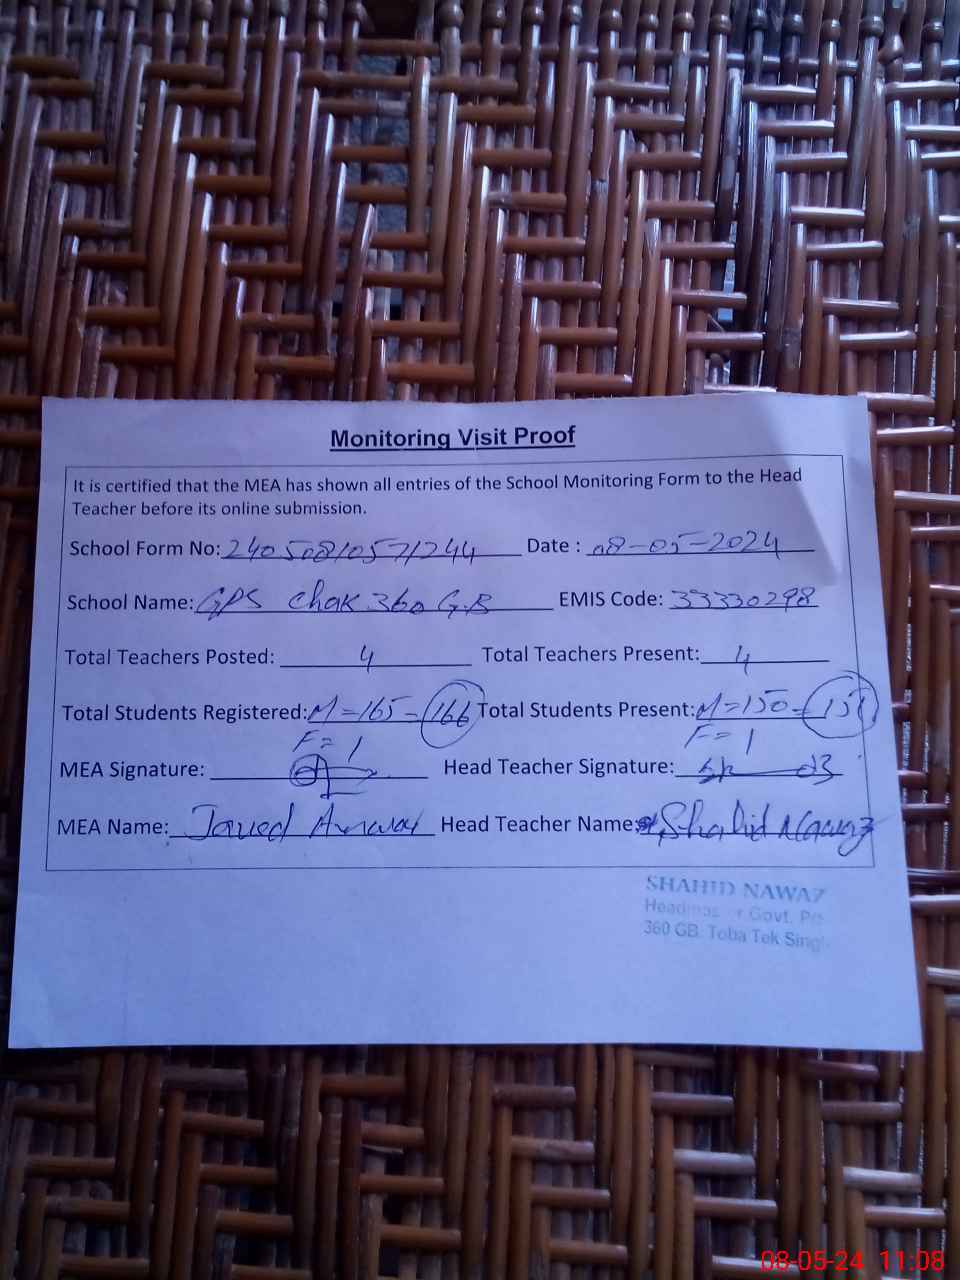 Monitoring Visit Proof
It is certified that the MEA has shown all entries of the School Monitoring Form to the Head
Teacher before its online submission.
School Form No: 24050810571244 Date : 08-05-2024
School Name: GPS Chak 360 G.B EMIS Code: 33330298
Total Teachers Posted: 4 Total Teachers Present: 4
Total Students Registered: M=165-166 Total Students Present: M=150=151
F=1 F=1
MEA Signature: Head Teacher Signature:
MEA Name: Javed Anwar Head Teacher Name: Shahid Nawaz
SHAHID NAWAZ
Govt.
360 GB. Toba Tek Singh
08-05-24 11:08